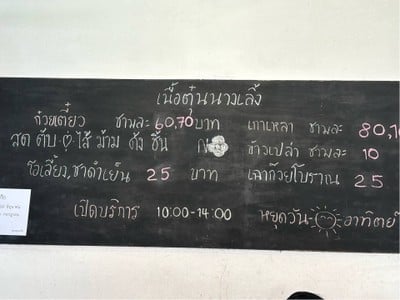 เนื้อตุ๋นนางเลิ้ง
ก๋วยเตี๋ยว ชามละ 60,70 บาท เกาเหลา ชามละ 80,1
สด ตับ ไส้ ม้าม ดัง ชิ้น ข้าวเปล่า ชามละ 10
โอเลี้ยง,ชาดำเย็น 25 บาท เฉาก๊วยโบราณ 25
เปิดบริการ 10:00-14:00 หยุดวัน- อาทิตย์